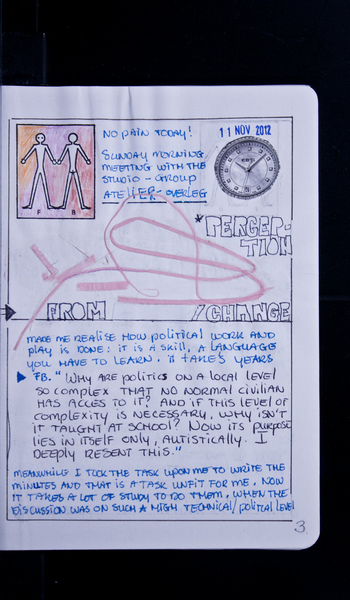 NO PAIN TODAY!
11 NOV 2012
SUNDAY MORNING
MEETING WITH THE
STUDIO - GROUP
ATELIER-OVERLEG
F B
*PERCEP-
TION
FROM /CHANGE
MADE ME REALISE HOW POLITICAL WORK AND
PLAY IS DONE: IT IS A SKILL, A LANGUAGE
YOU HAVE TO LEARN. IT TAKES YEARS
FB. "WHY ARE POLITICS ON A LOCAL LEVEL
SO COMPLEX THAT NO NORMAL CIVILIAN
HAS ACCES TO IT? AND IF THIS LEVEL OF
COMPLEXITY IS NECESSARY, WHY ISN'T
IT TAUGHT AT SCHOOL? NOW ITS PURPOSE
LIES IN ITSELF ONLY, AUTISTICALLY. I
DEEPLY RESENT THIS."
MEANWHILE I TOOK THE TASK UPON ME TO WRITE THE
MINUTES AND THAT IS A TASK UNFIT FOR ME. NOW
IT TAKES A LOT OF STUDY TO DO THEM, WHEN THE
DISCUSSION WAS ON SUCH A HIGH TECHNICAL/POLITICAL LEVEL
3